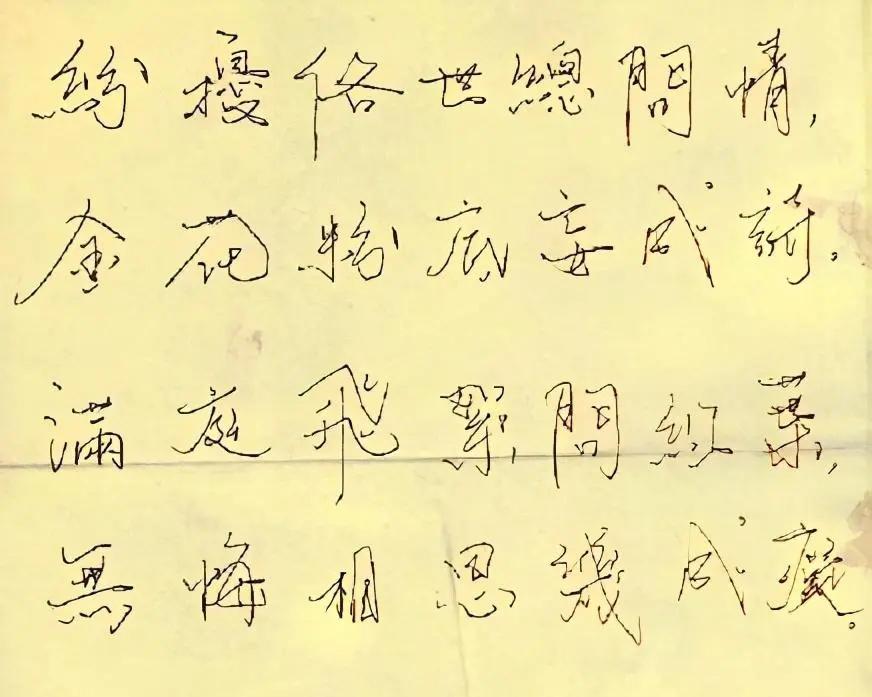 紛擾俗世總問情,
金花粉底妄成詩。
滿庭飛絮問紅葉,
無悔相思幾成癡。